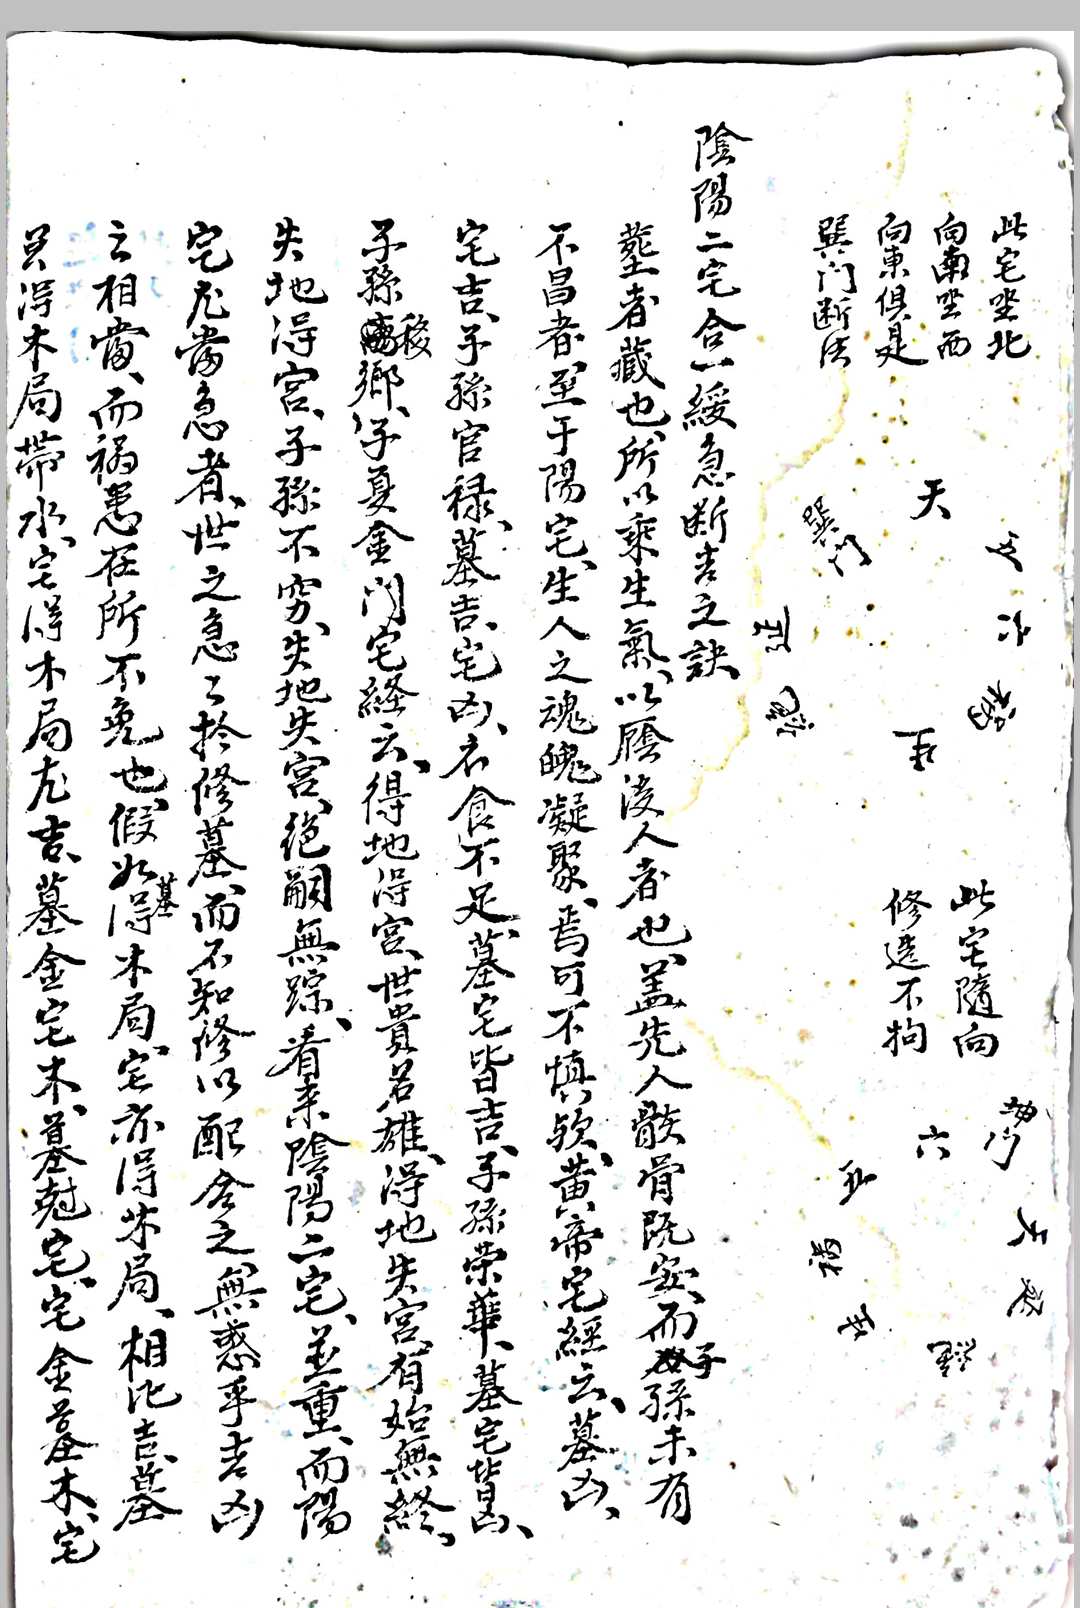 此宅坐北
向南坐西
向東俱是
巽门断法
天
巽门
六
五
此宅隨向
修造不拘
六
五
陰陽二宅合一緩急断吉之訣
塟者藏也、所以乘生氣、以廕後人者也、盖先人骸骨既安、而子孫未有
不昌者、至于陽宅、生人之魂魄凝聚、焉可不慎欤、黄帝宅經云、墓凶、
宅吉、子孫官禄、墓吉、宅凶、衣食不足、墓宅皆吉、子孫荣華、墓宅皆凶、
子孫移鄉、子夏金门宅経云、得地得宫、世貴名雄、得地失宫、有始無終、
失地得宫、子孫不窮、失地失宫、绝嗣無踪、看来陰陽二宅、並重、而陽
宅尤當急者、世之急々扵修墓、而不知修以配合之、無惑乎吉凶
之相當、而禍患在所不免也、假如墓得木局、宅亦得木局、相比吉、墓
若得木局帶水、宅得木局尤吉、墓金宅木、墓尅宅、宅金墓木、宅